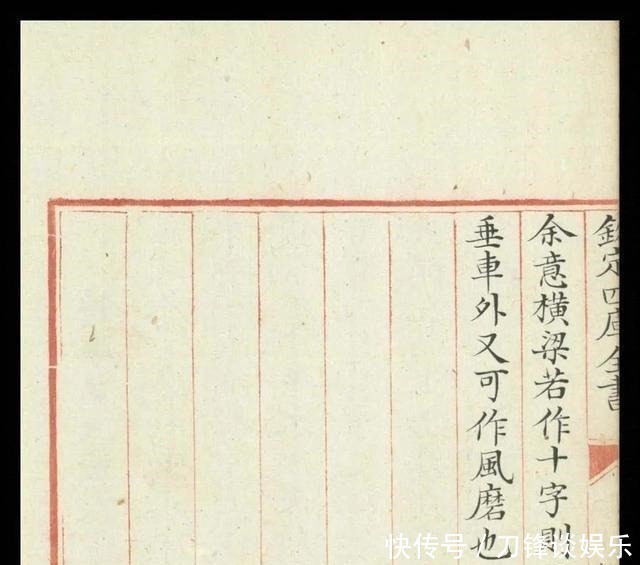 欽定四庫全書
余意橫梁若作十字則
垂車外又可作風磨也
快传号/刀锋谈娱乐